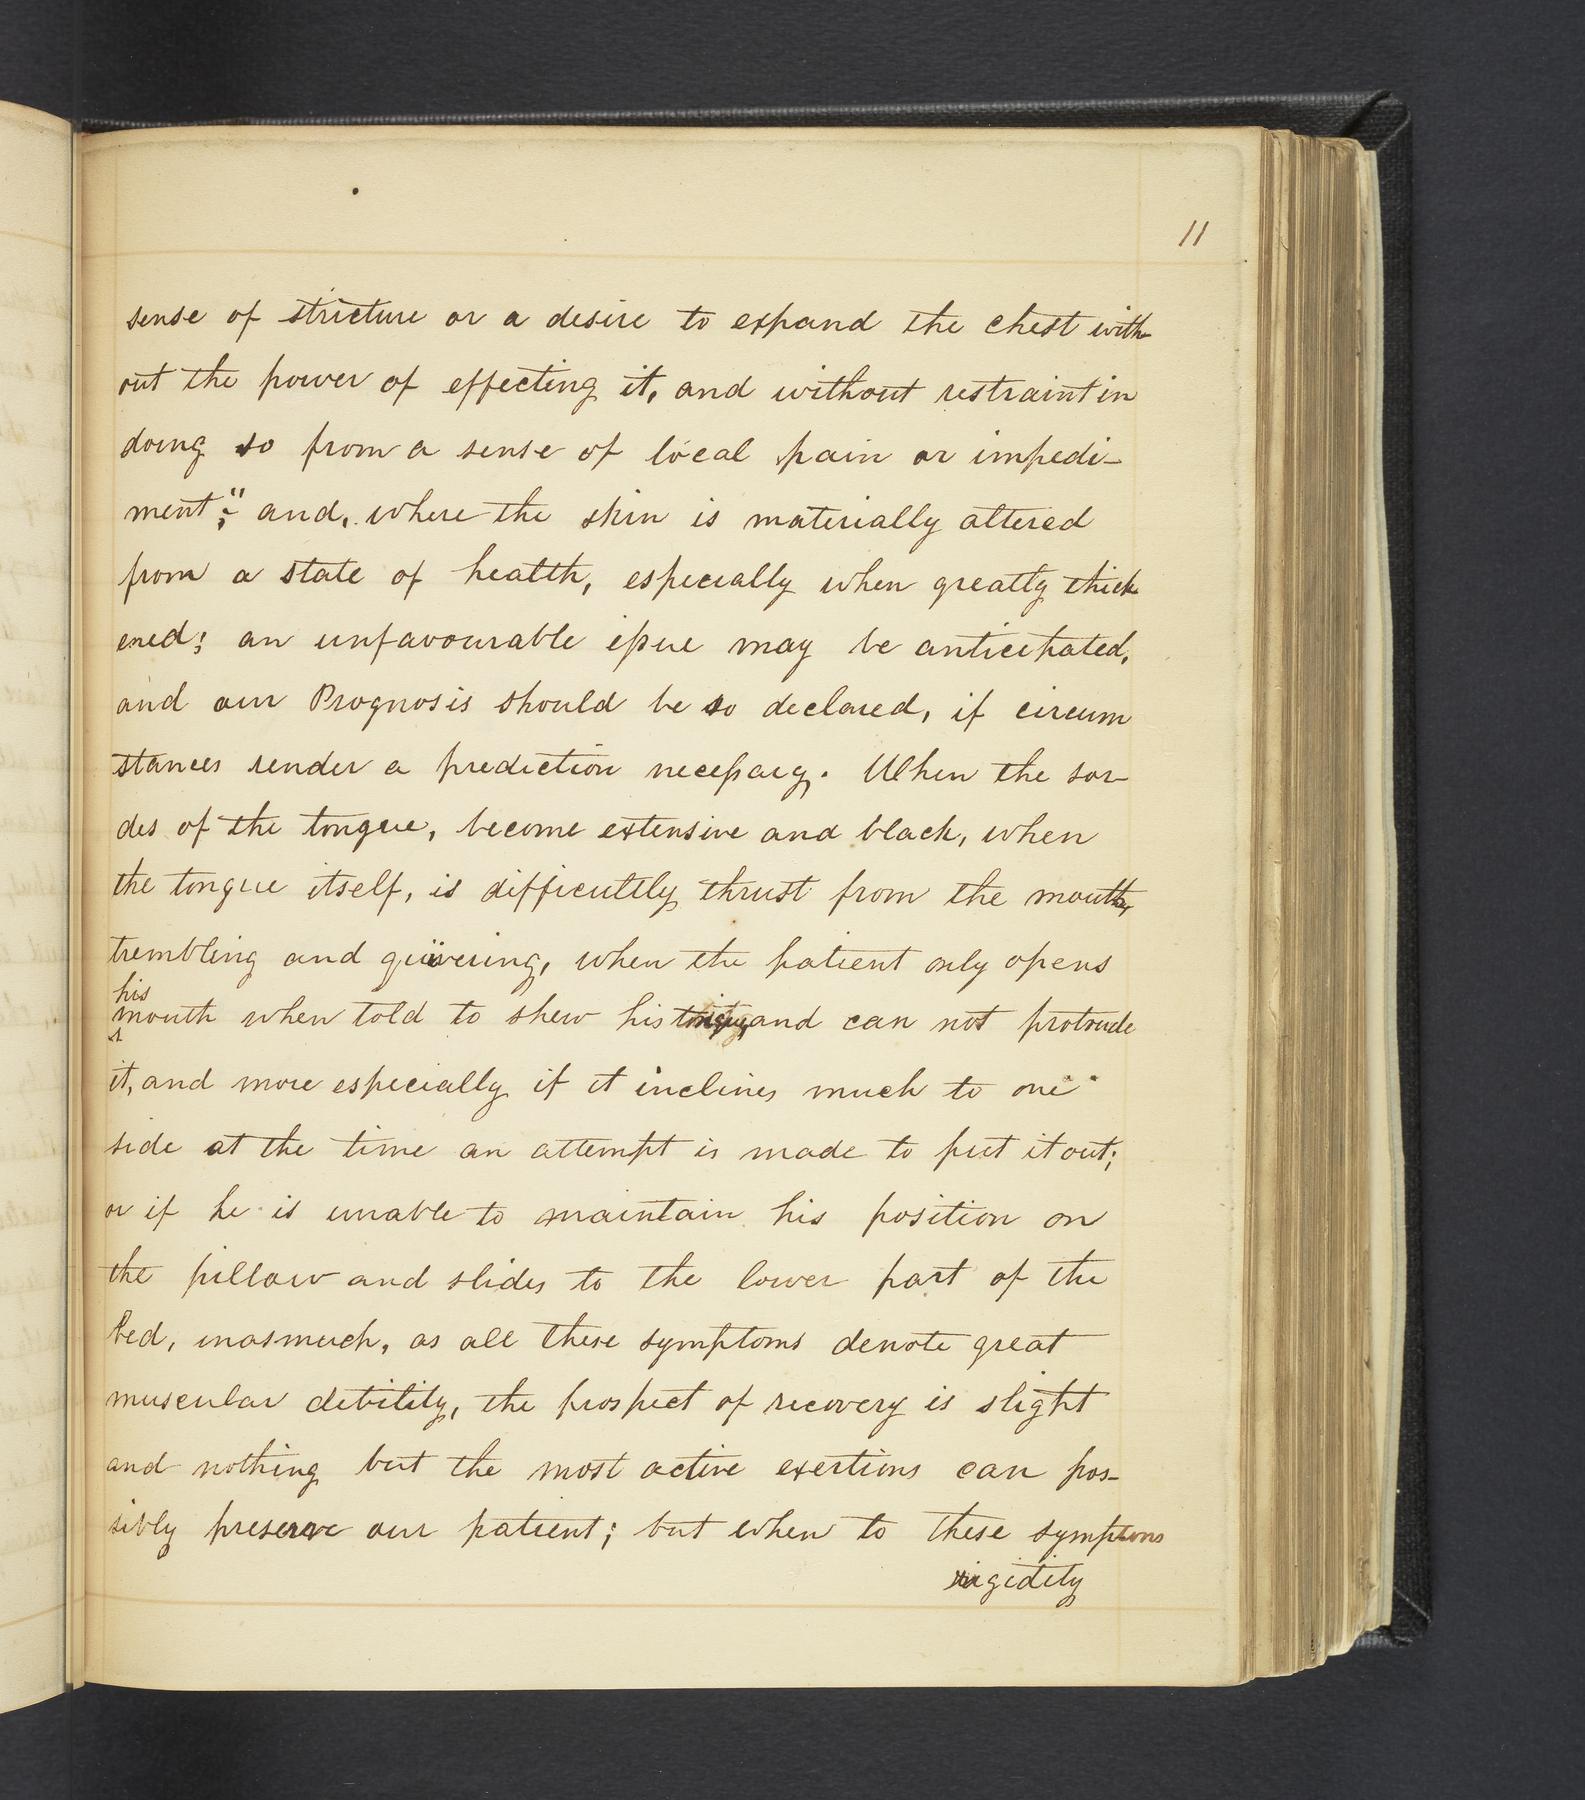 11
sense of stricture or a desire to expand the chest with
out the power of effecting it, and without restraint in
doing so from a sense of local pain or impedi-
ment;" and, where the skin is materially altered
from a state of health, especially when greatly thick
ened; an unfavourable issue may be anticipated,
and our Prognosis should be so declared, if circum
stances render a prediction necessary. When the sor-
des of the tongue, become extensive and black, when
the tongue itself, is difficultly thrust from the mouth,
trembling and quivering, when the patient only opens
his
mouth when told to shew his tongue, and can not protrude
it, and more especially if it inclines much to one
side at the time an attempt is made to put it out;
or if he is unable to maintain his position on
the pillow and slides to the lower part of the
bed, inasmuch, as all these symptoms denote great
muscular debility, the prospect of recovery is slight
and nothing but the most active exertions can pos-
sibly preserve our patient; but when to these symptoms
rigidity